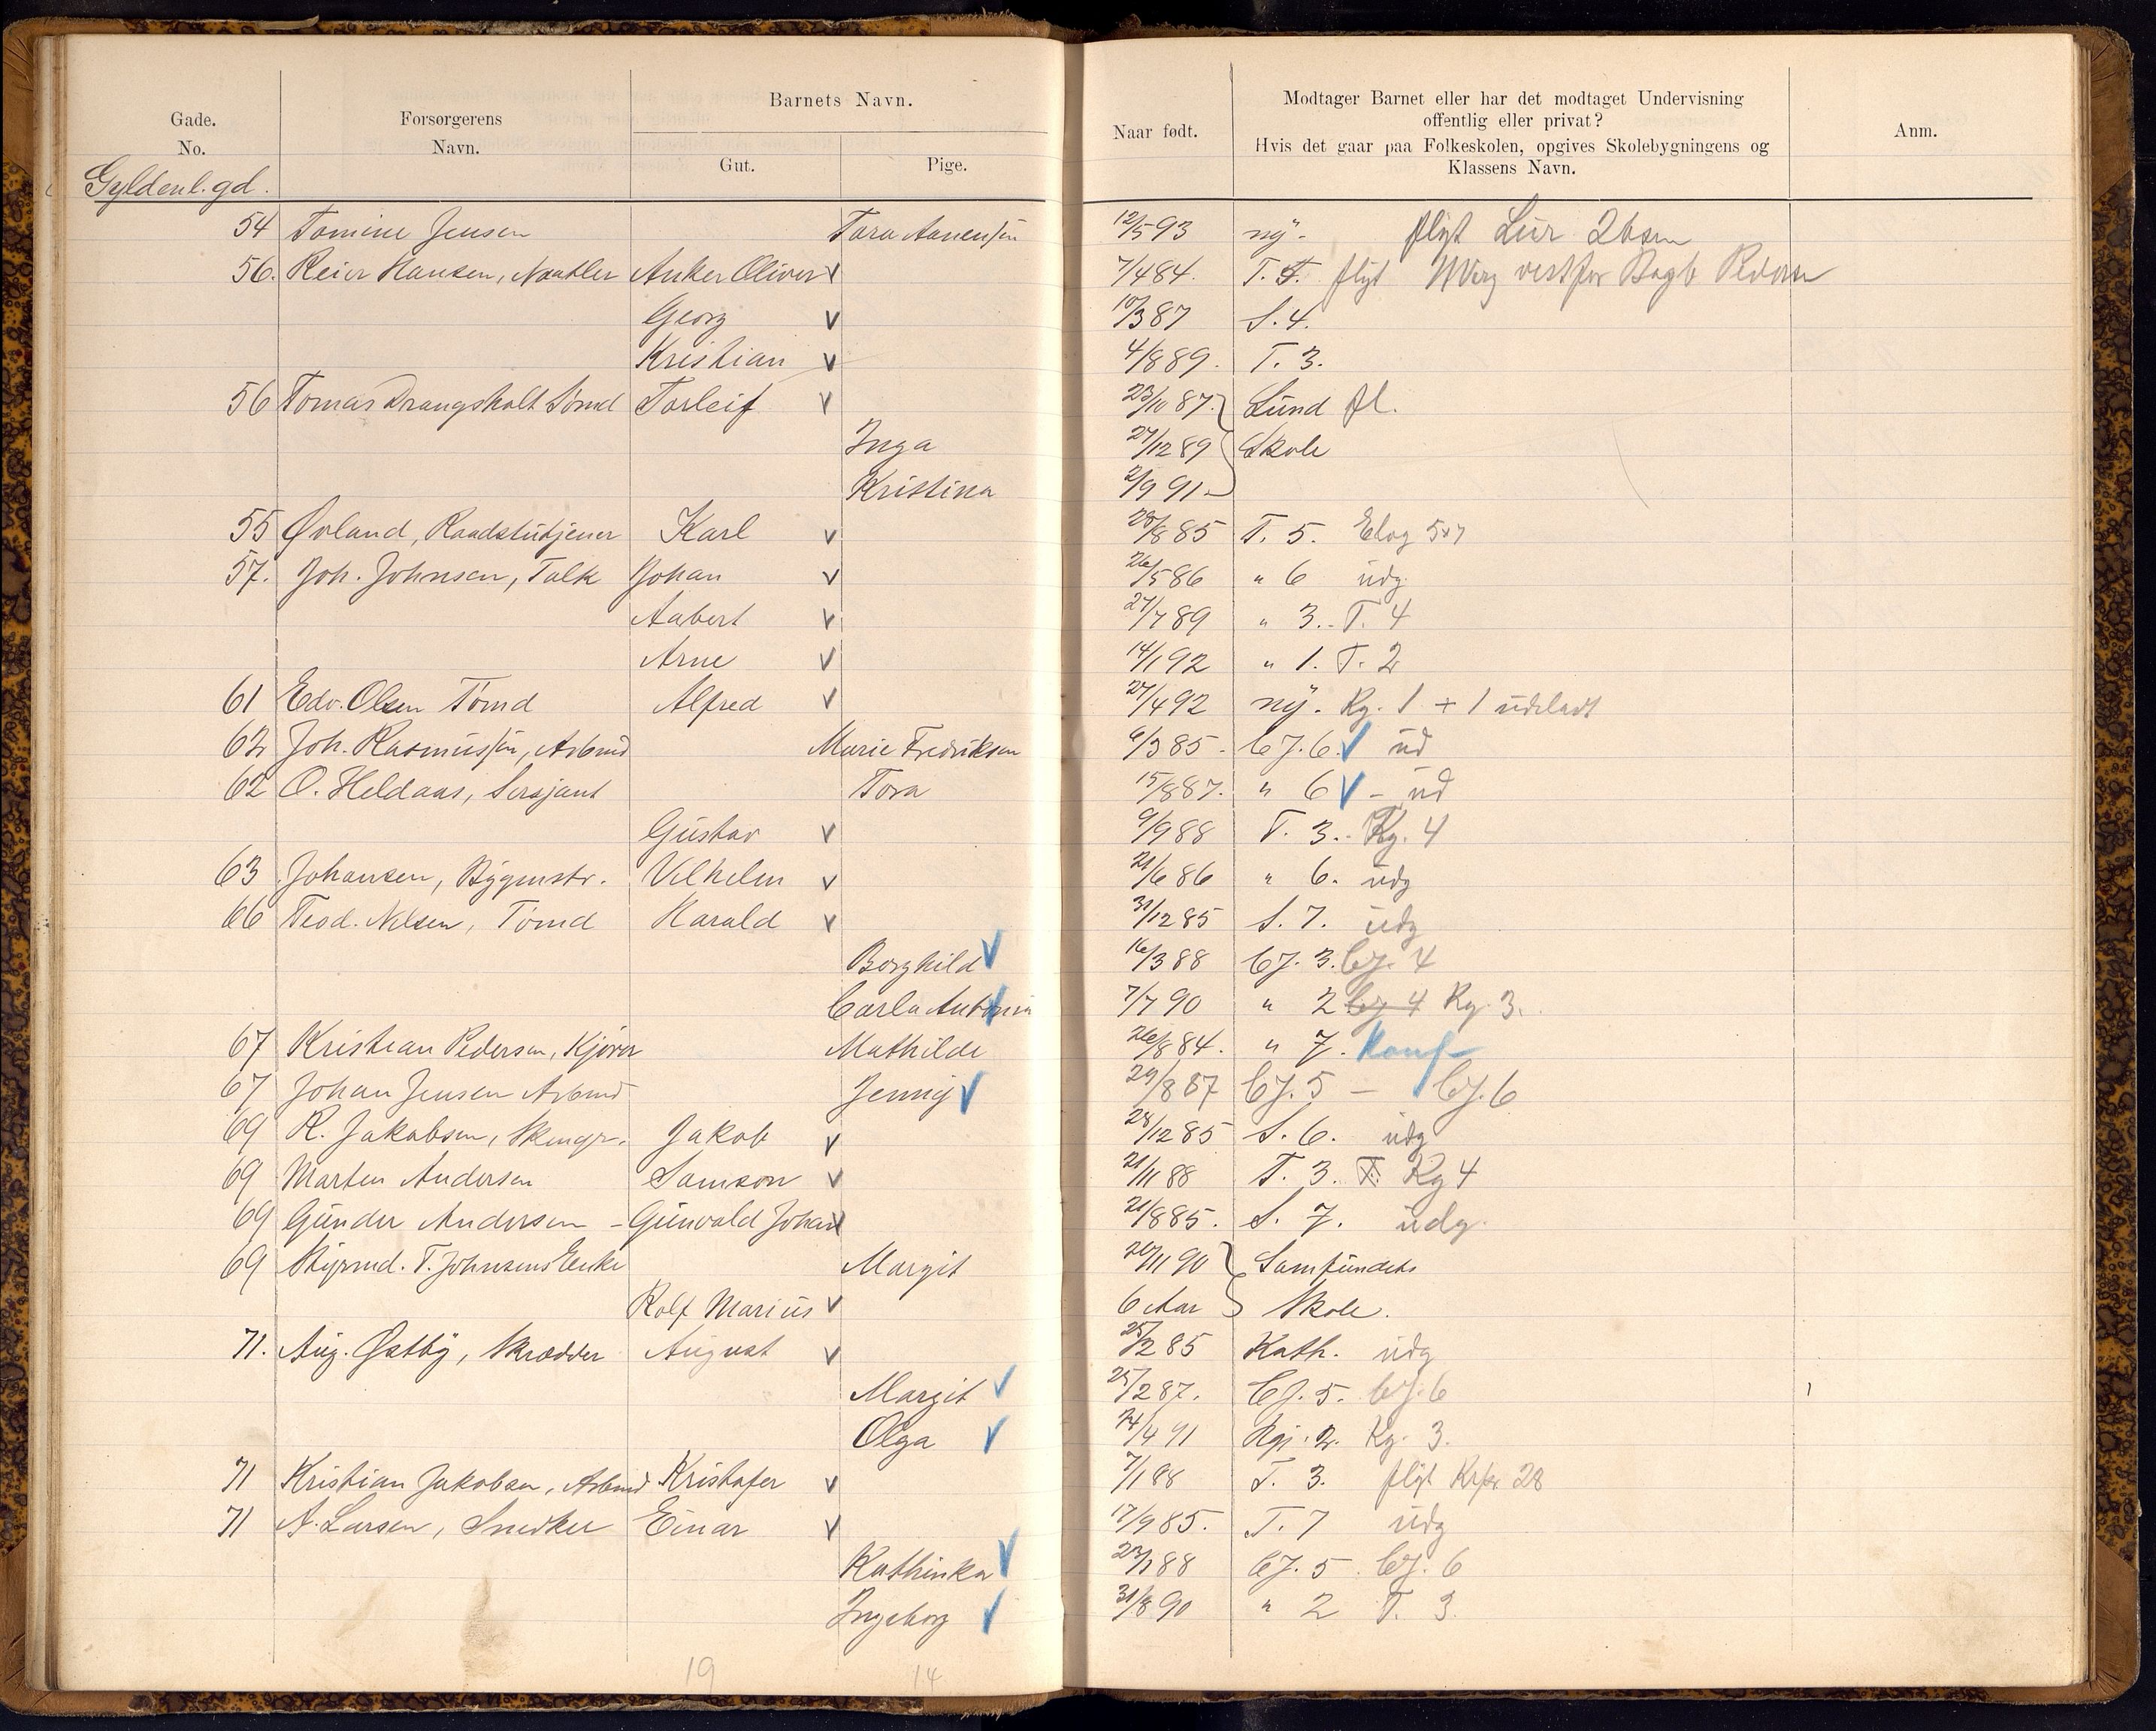 Gade.
No.
Forsørgerens
Navn.
Barnets Navn.
Gut.
Pige.
Naar født.
Modtager Barnet eller har det modtaget Undervisning
offentlig eller privat?
Hvis det gaar paa Folkeskolen, opgives Skolebygningens og
Klassens Navn.
Anm.
Gyldenl.gd.
54 Tomine Jensen Tara Aanensen 12/5 93 ny. flyt Lur 26
56. Reier Hansen, Anker Oliver v 7/4 84. T. 5. flyt
Georg v 10/3 87 S. 4.
Kristian v 4/8 89. T. 3.
56 Tomas Drangsholt Tømd Torleif v 23/10 87 Lund fl.
Inga 27/12 89 Skole
Kristina 2/9 91
55 Øvland, Raadstutjener Karl v 28/8 85 T. 5.
57. Joh. Johnsen, Tolk Johan v 26/5 86 " 6 udg.
Aabert v 27/7 89 " 3. T. 4
Arne v 14/1 92 " 1. T. 2
61 Edv. Olsen Tømd Alfred v 27/4 92 ny. Kg. 1 + 1 udeladt
62 Joh. Rasmussen, Arbmd Marie Fredriksen 6/3 85. CJ. 6. v ud
62 O. Heldaas, Sersjant Tora 15/8 87. " 6 v - ud
Gustav v 9/9 88 T. 3. Kg. 4
63 Johansen, Bygmstr. Vilhelm v 21/6 86 " 6. udg
66 Teod. Nilsen, Tømd Harald v 31/12 85 S. 7. udg
Borghild v 16/3 88 CJ. 3. CJ. 4
Carla Antonia v 7/7 90 " 2 CJ 4 Kg. 3.
67 Kristian Pedersen, Kjører Mathilde 26/8 84. " 7. Konf
67 Johan Jensen Arbmd Jenny v 29/8 87 CJ. 5 — CJ. 6
69 R. Jakobsen, Jakob v 28/12 85 S. 6. udg
69 Marten Andersen Samson v 21/11 88 T. 3. T. Kg 4
69 Gunder Andersen - Gunvald Johan v 21/8 85. S. 7. udg.
69 Styrmd. T. Johnsens Enke Margit 20/11 90 Samfundets
Rolf Marius v 6 Aar Skole.
71. Aug. Østby, Skrædder August v 25/2 85 Kath. udg
Margit v 25/2 87. CJ. 5. CJ. 6
Olga v 24/4 91 2. Kg. 3.
71 Kristian Jakobsen, Arbmd Kristofer v 7/1 88 T. 3. flyt 28
71 A. Larsen, Snedker Einar v 17/9 85. T. 7 udg
Kathinka v 23/1 88 CJ. 5. CJ. 6
Ingeborg v 31/8 90 " 2 T. 3.
19 14